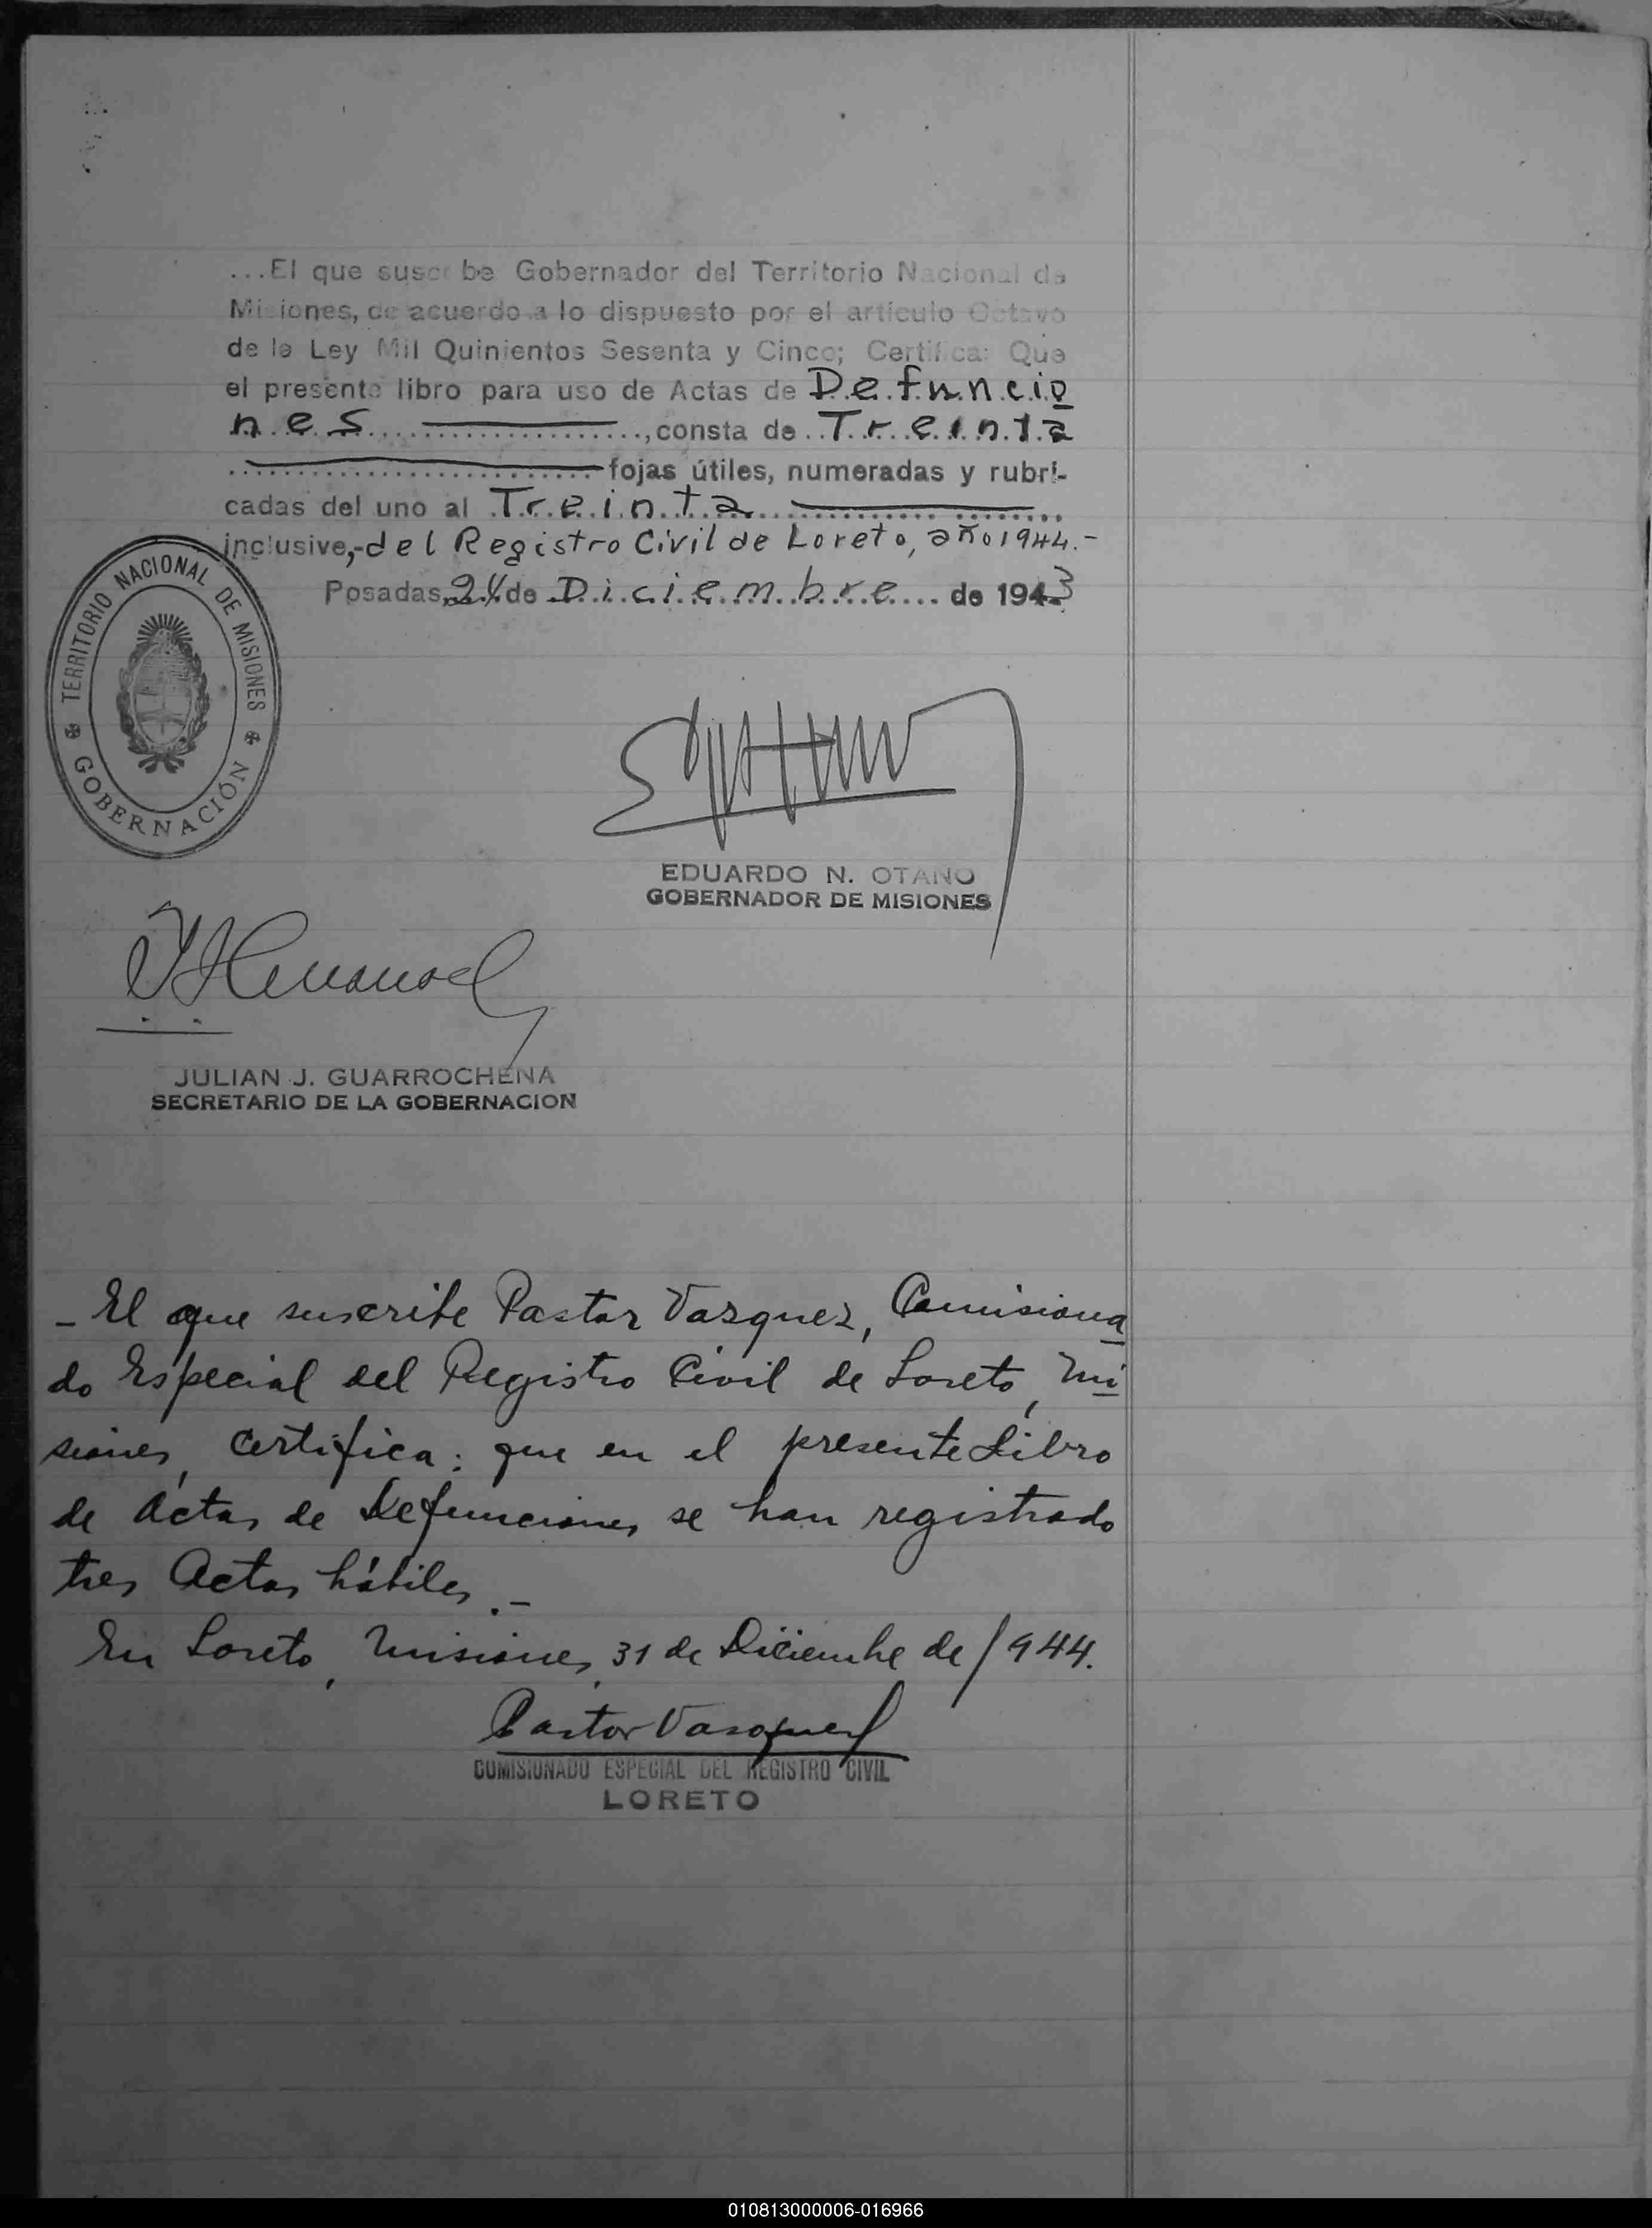 ...El que suscribe Gobernador del Territorio Nacional de
Misiones, de acuerdo a lo dispuesto por el artículo Octavo
de la Ley Mil Quinientos Sesenta y Cinco; Certifica: Que
el presente libro para uso de Actas de Defuncio
nes, consta de Treinta
fojas útiles, numeradas y rubri-
cadas del uno al Treinta
inclusive,-del Registro Civil de Loreto, año 1944.-
Posadas, 24 de Diciembre de 1943
TERRITORIO NACIONAL DE MISIONES
GOBERNACIÓN
EDUARDO N. OTAÑO
GOBERNADOR DE MISIONES
JULIAN J. GUARROCHENA
SECRETARIO DE LA GOBERNACION
- El que suscribe Pastor Vazquez, Comisiona
do Especial del Registro Civil de Loreto, Mi
siones, Certifica: que en el presente Libro
de Actas de Defunciones se han registrado
tres Actas hábiles.-
En Loreto, Misiones, 31 de Diciembre de 1944.
Pastor Vasquez
COMISIONADO ESPECIAL DEL REGISTRO CIVIL
LORETO
010813000006-016966